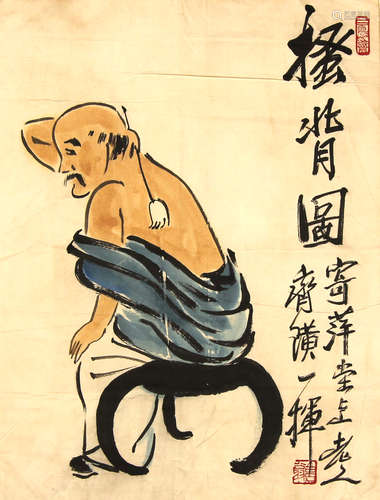 搔背圖
寄萍堂上老人
齊璜一揮